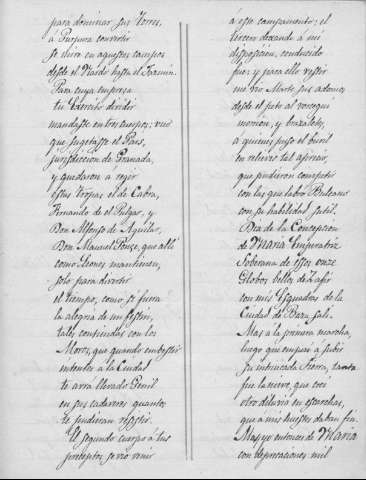 para dominar sus Torres,
a Purpura convertir
se mira en aquestos campos
desde el Nardo hasta el Jazmin.
Para cuya empresa
tu Exercito dividir
mandaste en tres cuerpos; uno
que sugetasse el Pais,
jurisdiccion de Granada,
y quedaron a regir
estas tropas el de Cabra,
Fernando de el Pulgar, y
Don Alfonso de Aguilar,
Don Manuel Ponze, que alli
como Leones mantienen,
solo para divertir
el tiempo, como si fuera
la alegria de un festin,
tales contiendas con los
Moros, que quando embestir
intenten a la Ciudad
te avra llevado Genil
en sus cadaveres quantos
te pudieran resistir.
El segundo cuerpo á tus
preceptos se vio venir
á este campamento; el
tercero dexando á mi
disposicion, conducido
fue; y para ello vestir
me vio Marte sus adornos
desde el peto al
morrion, y brazalete,
á quienes puso el buril
en relieve tal
que pudieron competir
con las que labró Bulcano
con su habilidad sutil.
Dia de la Concepcion
de Maria Emperatriz
Soberana de essos onze
Globos bellos de Zafir
con mis Esquadras de la
Ciudad de Baza sali.
Mas á la primera marcha,
luego que empezé a subir
su intrincada Tierra, tanta
fue la nieve, que crei
otro diluvio en escarchas,
que a mis huestes dava fin.
Mas yo entonces de Maria
con deprecaciones mil